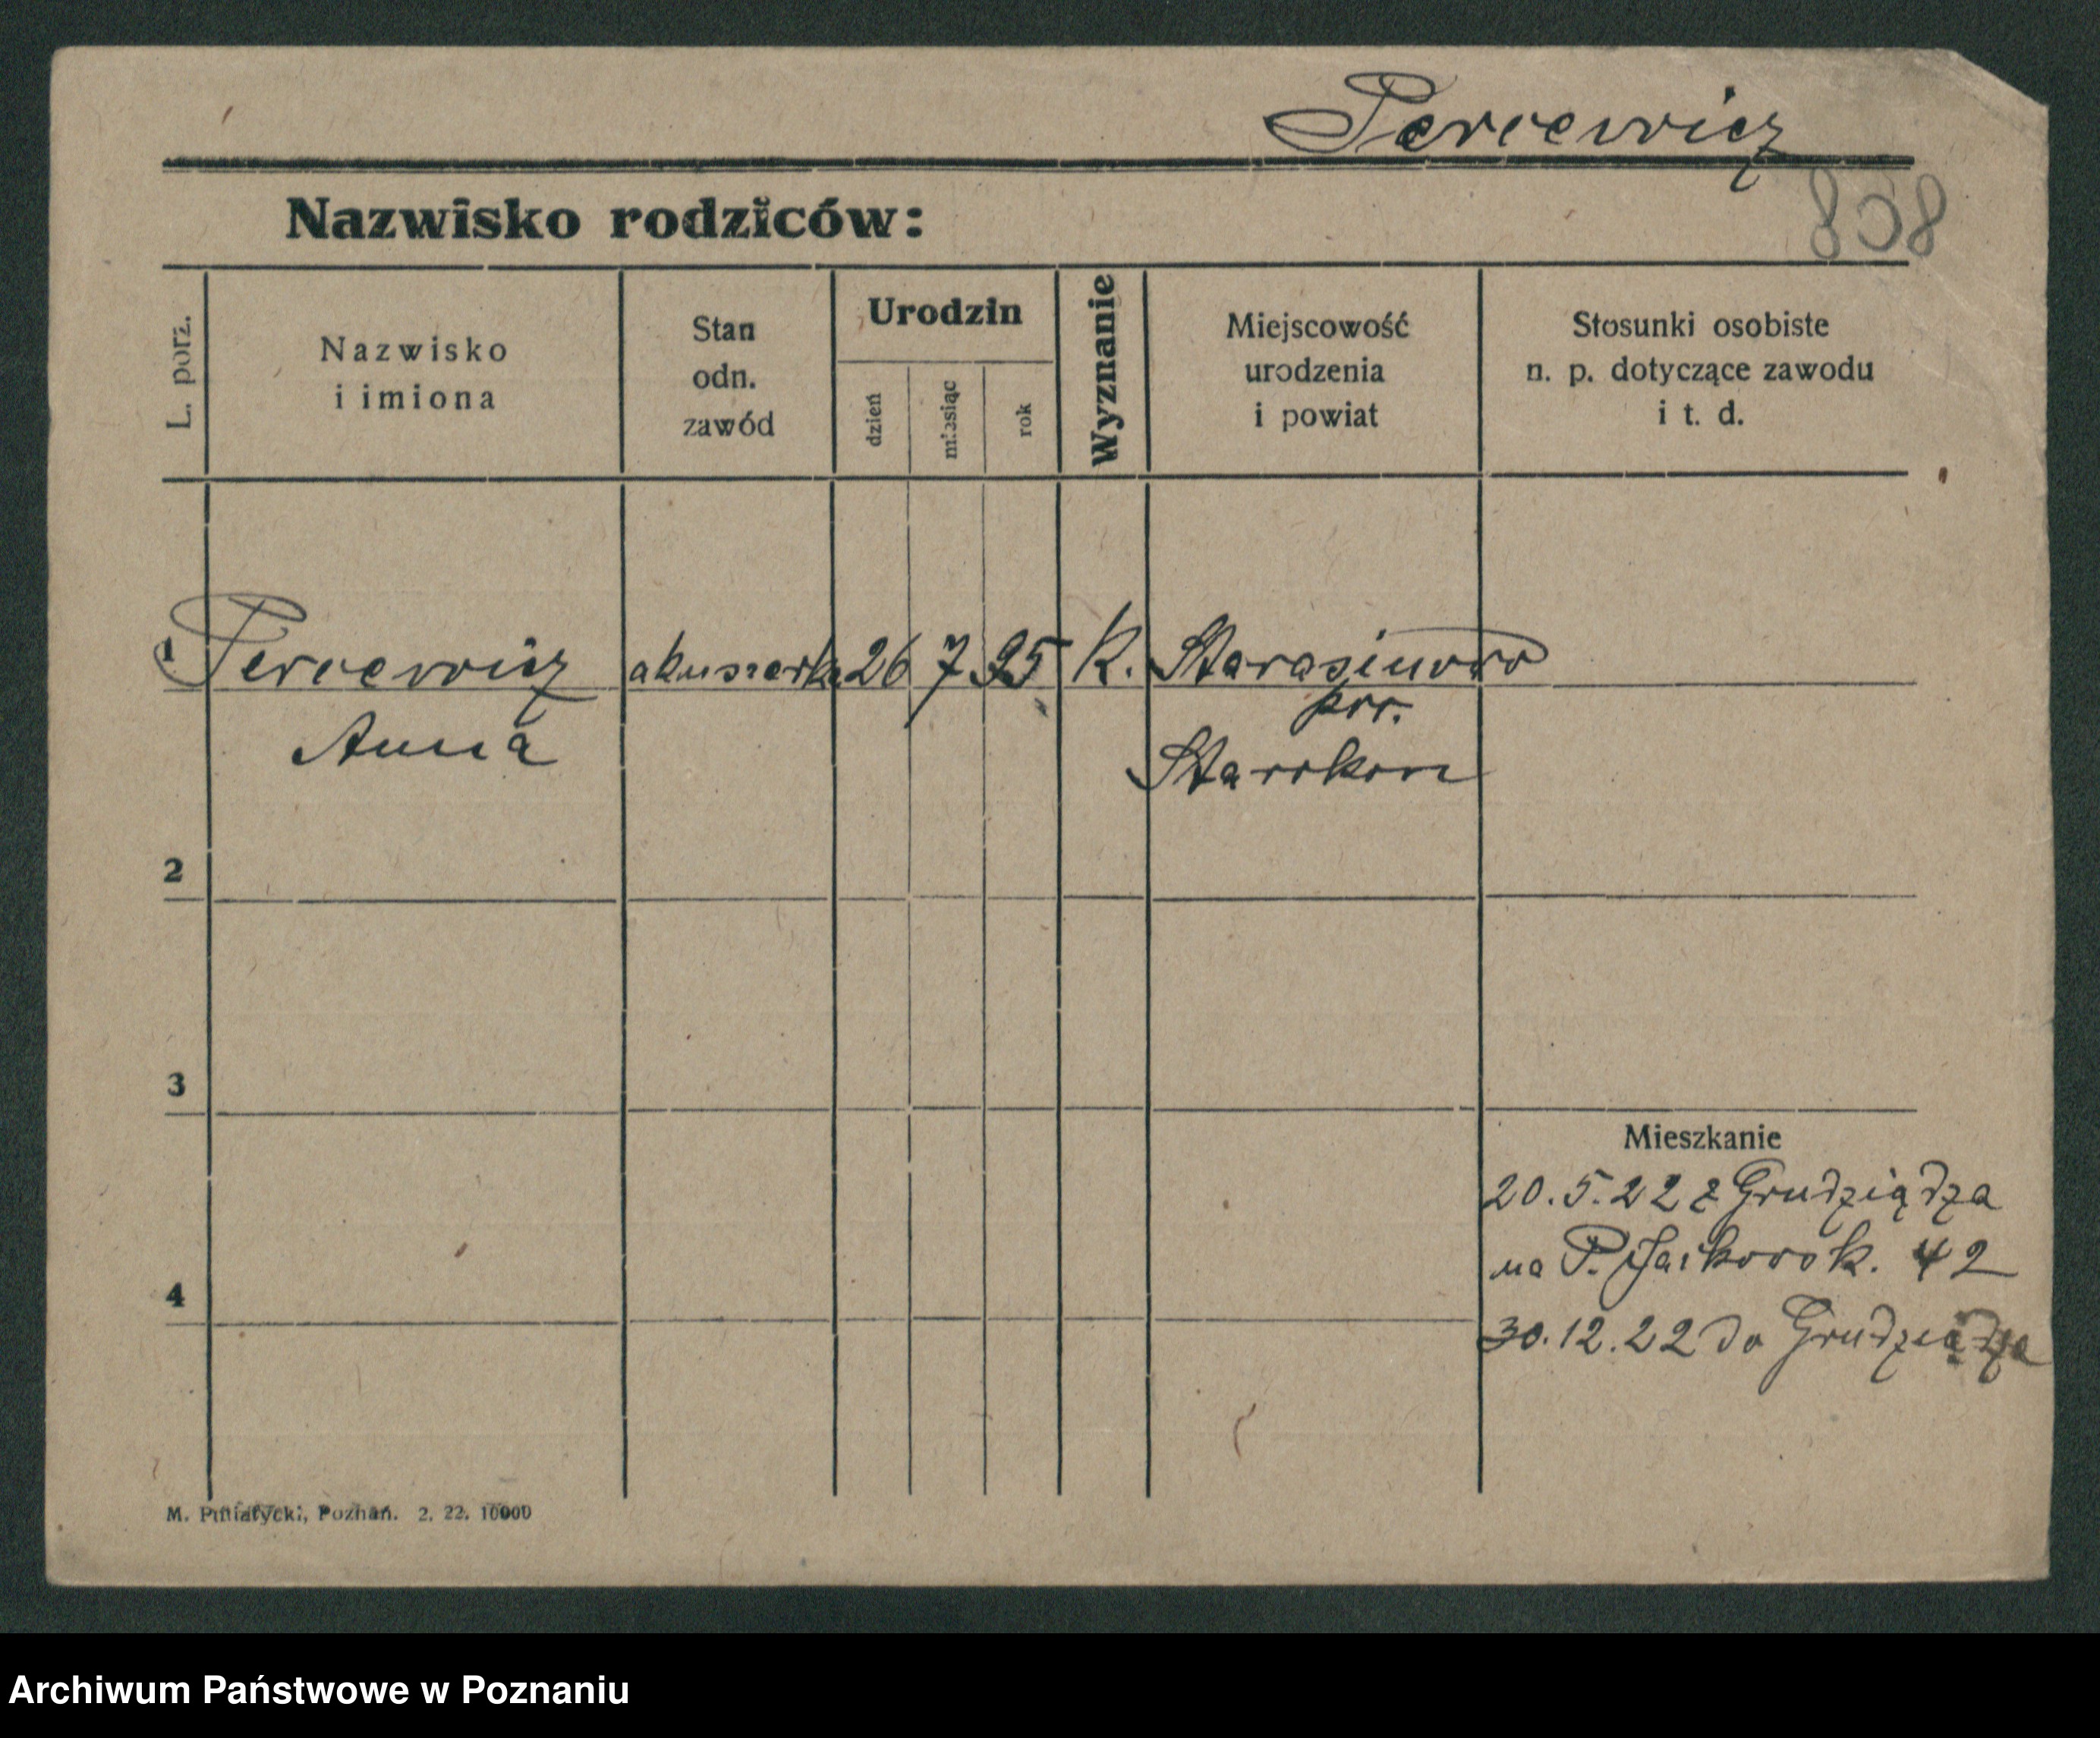 Percewicz
858
Nazwisko rodziców:
L. porz.
Nazwisko
i imiona
Stan
odn.
zawód
Urodzin
dzień
miesiąc
rok
Wyznanie
Miejscowość
urodzenia
i powiat
Stosunki osobiste
n. p. dotyczące zawodu
i t. d.
1 Percewicz akuszerka 26 7 95 K.
pow.
Anna
2
3
Mieszkanie
20.5.22 z Grudziądza
na P. 42
4
30.12.22 do Grudziądza
M. Poznań. 2. 22. 10000
Archiwum Państwowe w Poznaniu